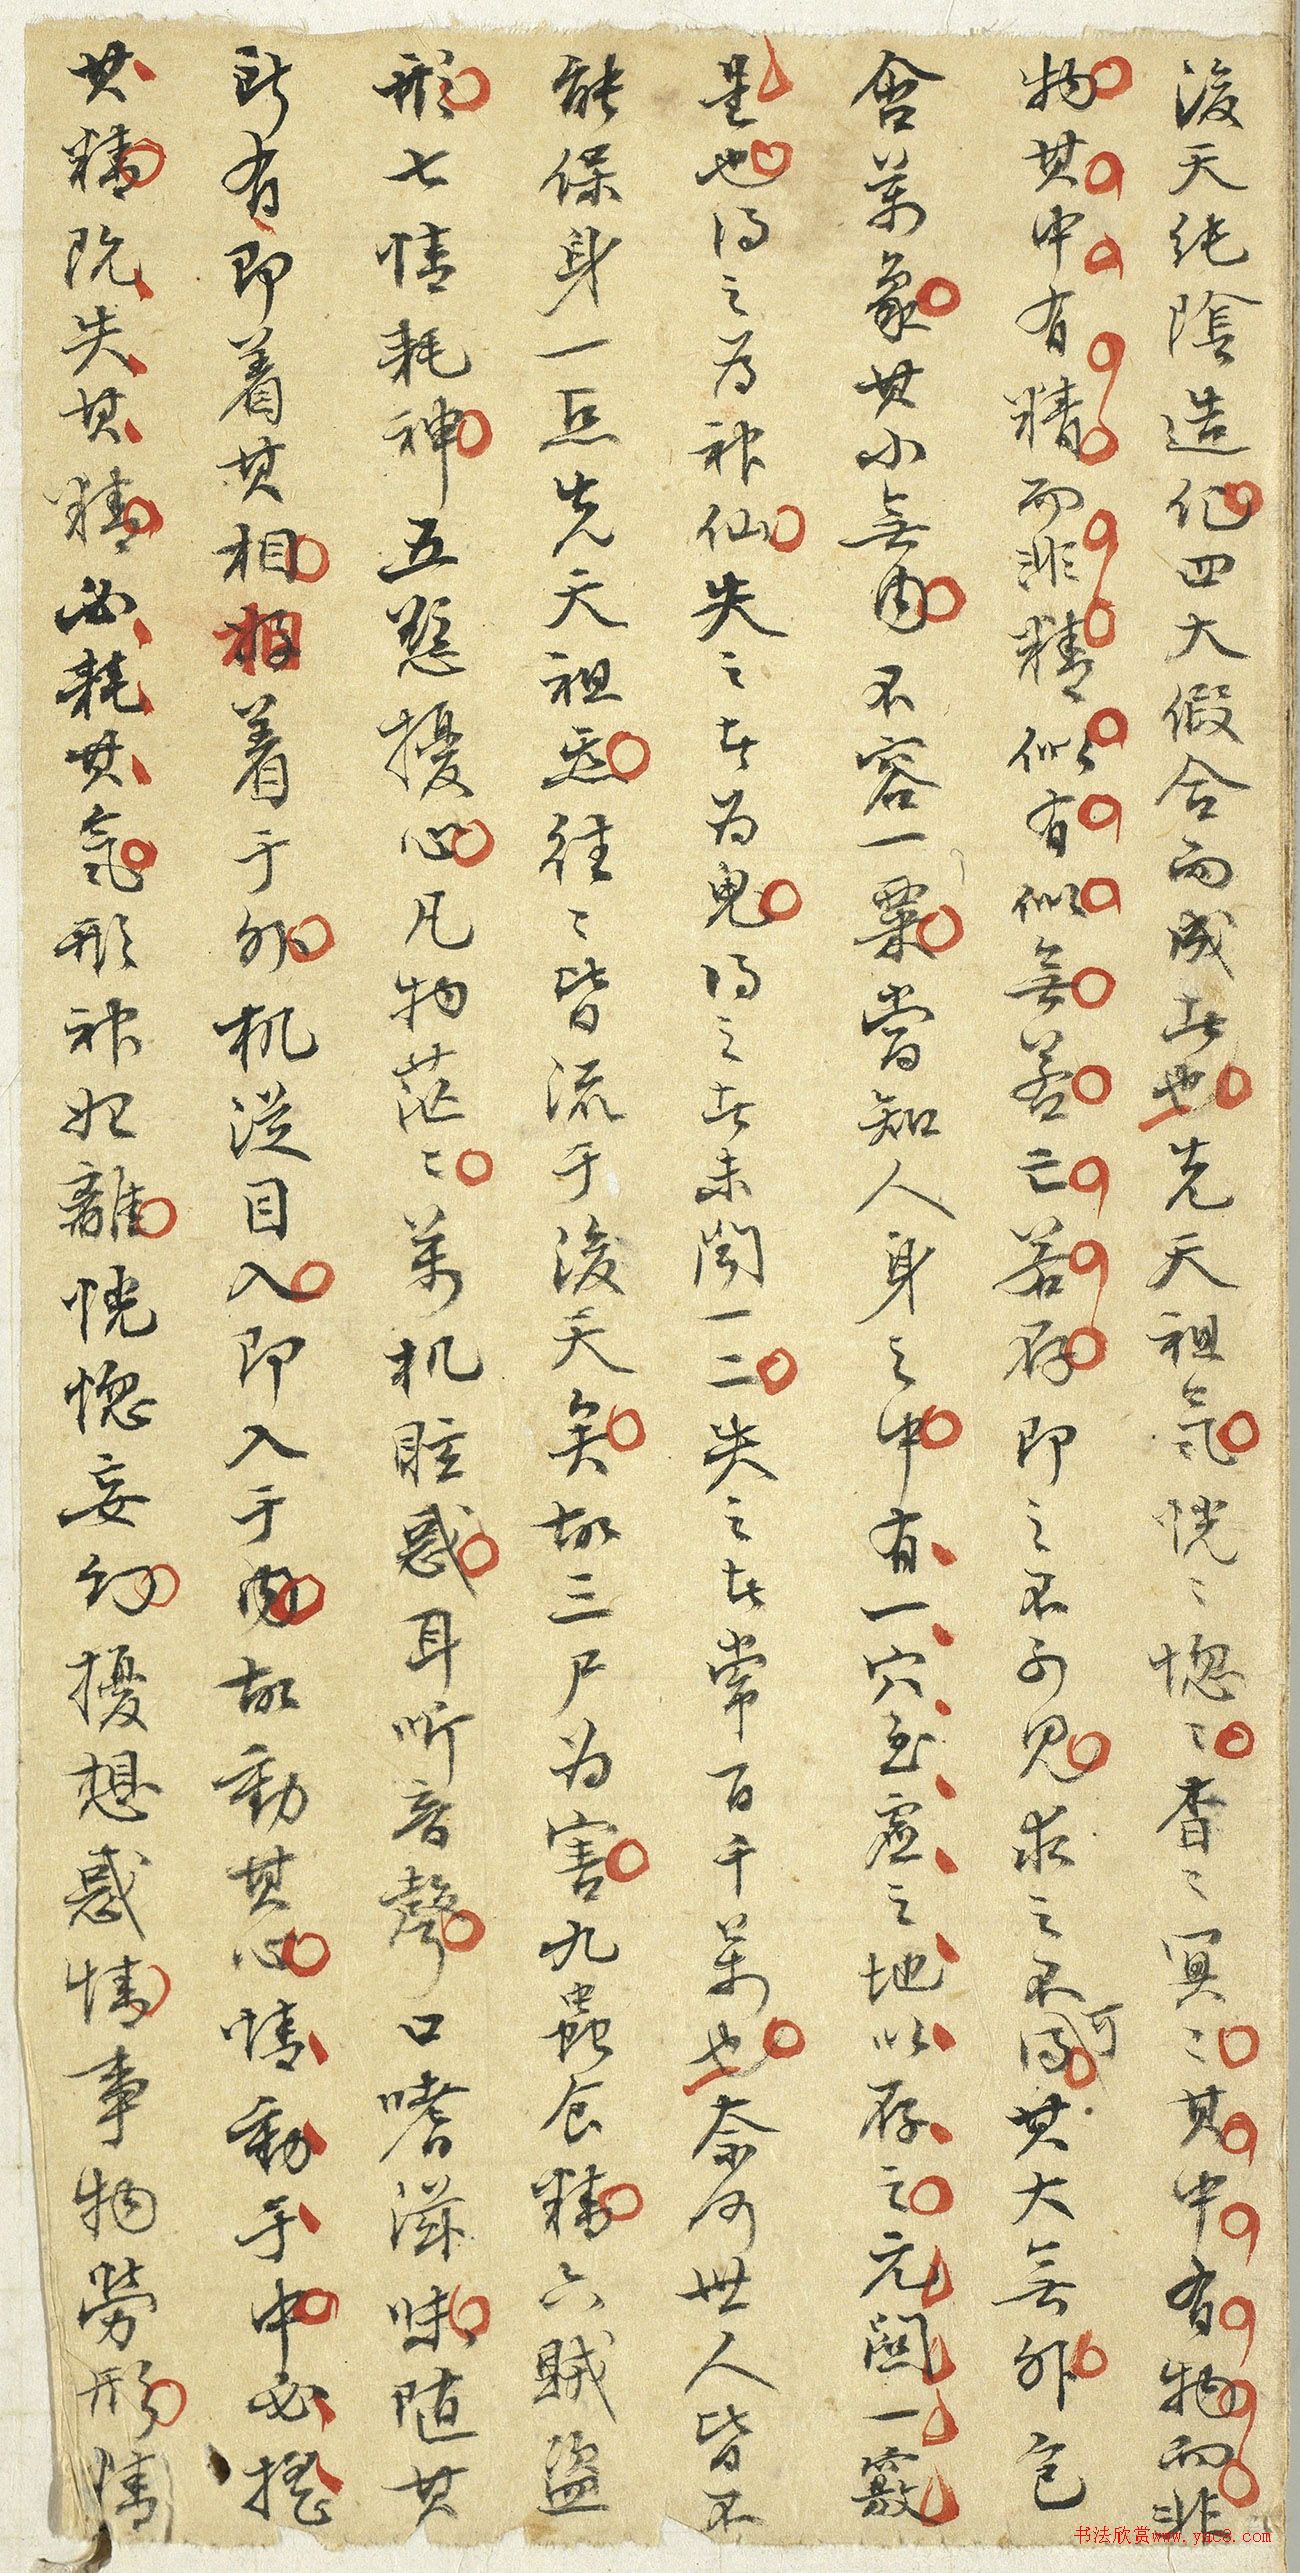 後天純陰造化四大假合而成者也先天祖氣恍〻惚〻杳〻冥〻其中有物而非
物其中有精而非精似有似無若亡若存即之不可見求之不可得其大無外包
含萬象其小無內不容一粟當知人身之中有一穴至虛之地以存之元關一竅
是也得之為神仙失之者為鬼得之者未聞一二失之者常百千萬也奈何世人皆不
能保身一点先天祖炁往〻皆流于後天矣故三尸为害九蟲食精六賊盜
形七情耗神五慾擾心凡物茫〻萬机眩惑耳听音聲口嗜滋味随其
所有即着其相相着于外机從目入即入于內故動其心情動于中必搖
其精既失其精必耗其氣形神如離恍惚妄幻擾想惑情事物勞形情
书法欣赏www.yac8.com